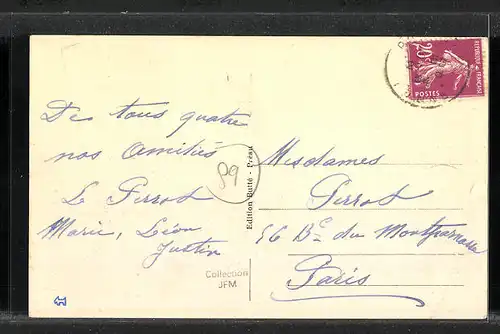 De tous quatre
nos amitiés
Le Perrot
Marie, Léon
Justin
89
Edition Buffé - Préau
Collection
JFM
Mesdames
Perrot
56 Bᵉ du Montparnasse
Paris
20c
REPUBLIQUE FRANÇAISE
POSTES